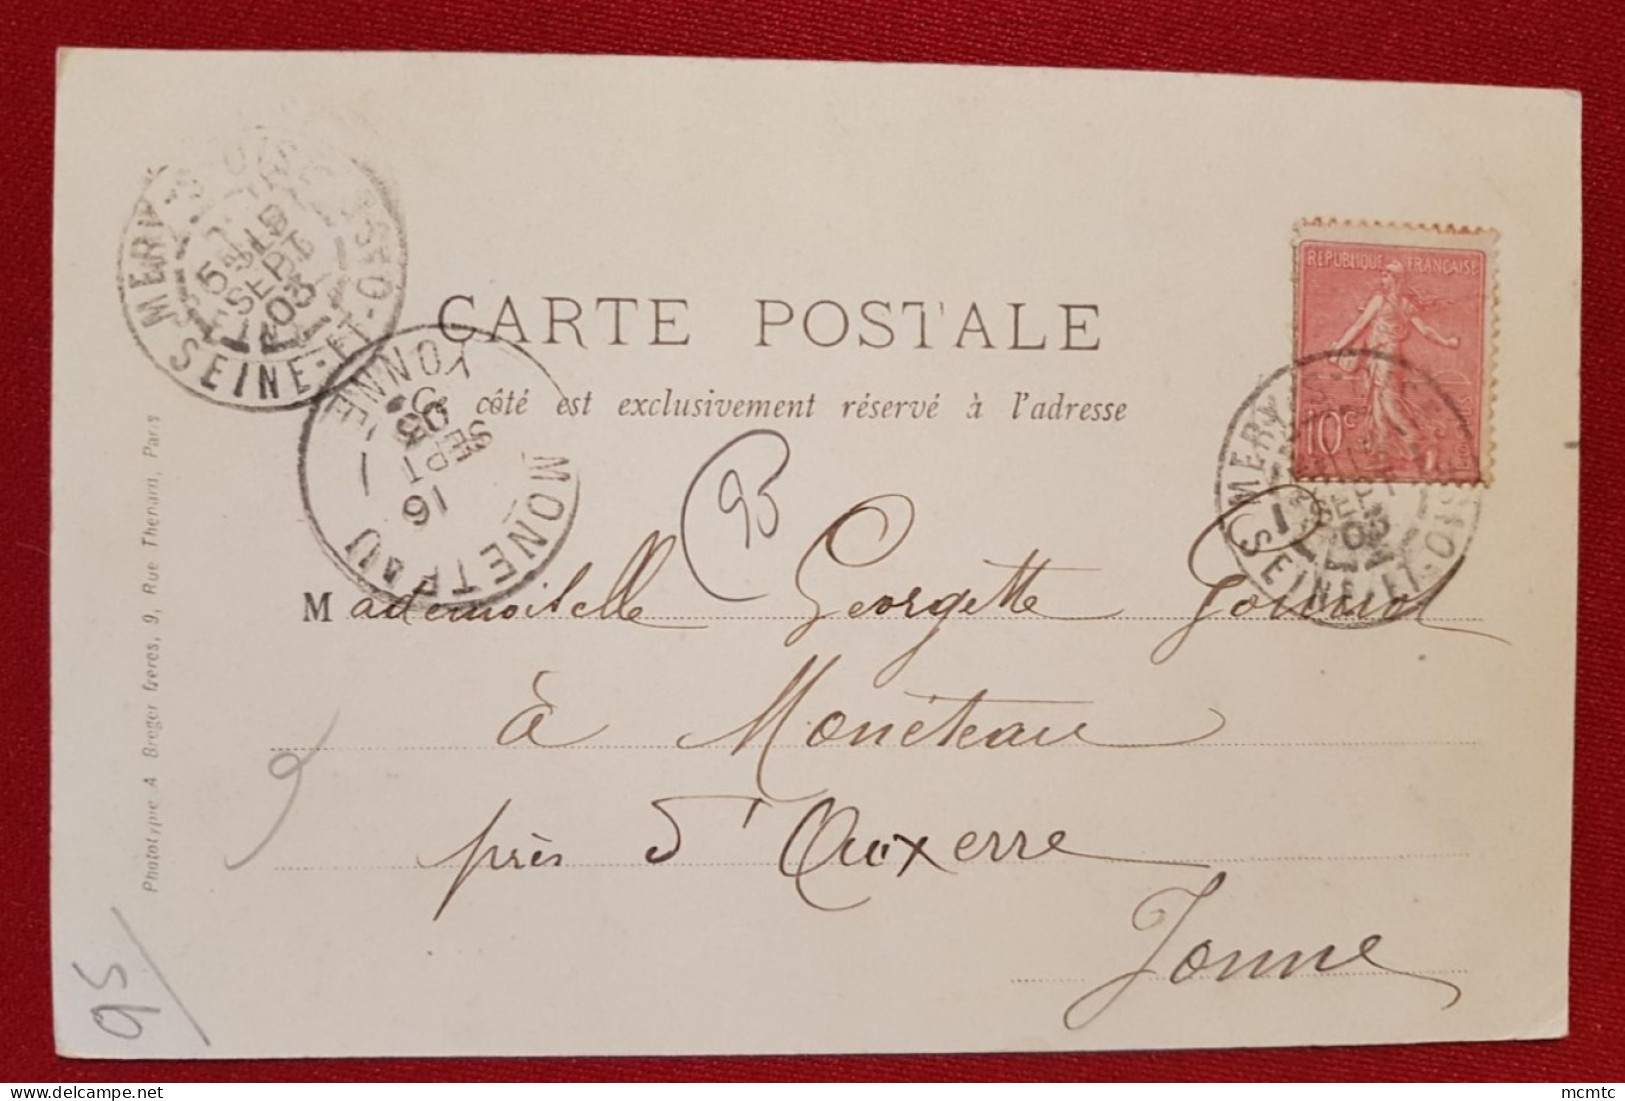 CARTE POSTALE
Ce côté est exclusivement réservé à l'adresse
MERY-S-O
15 SEPT 03
SEINE-ET-OISE
YONNE
16 SEPT 03
MONETEAU
REPUBLIQUE FRANÇAISE
10c
MERY
SEPT 03
SEINE-ET-OISE
93
Mademoiselle Georgette
à Monéteau
près d'Auxerre
Yonne
Phototypie A Breger freres, 9, Rue Thenard, Paris
95
mcmtc